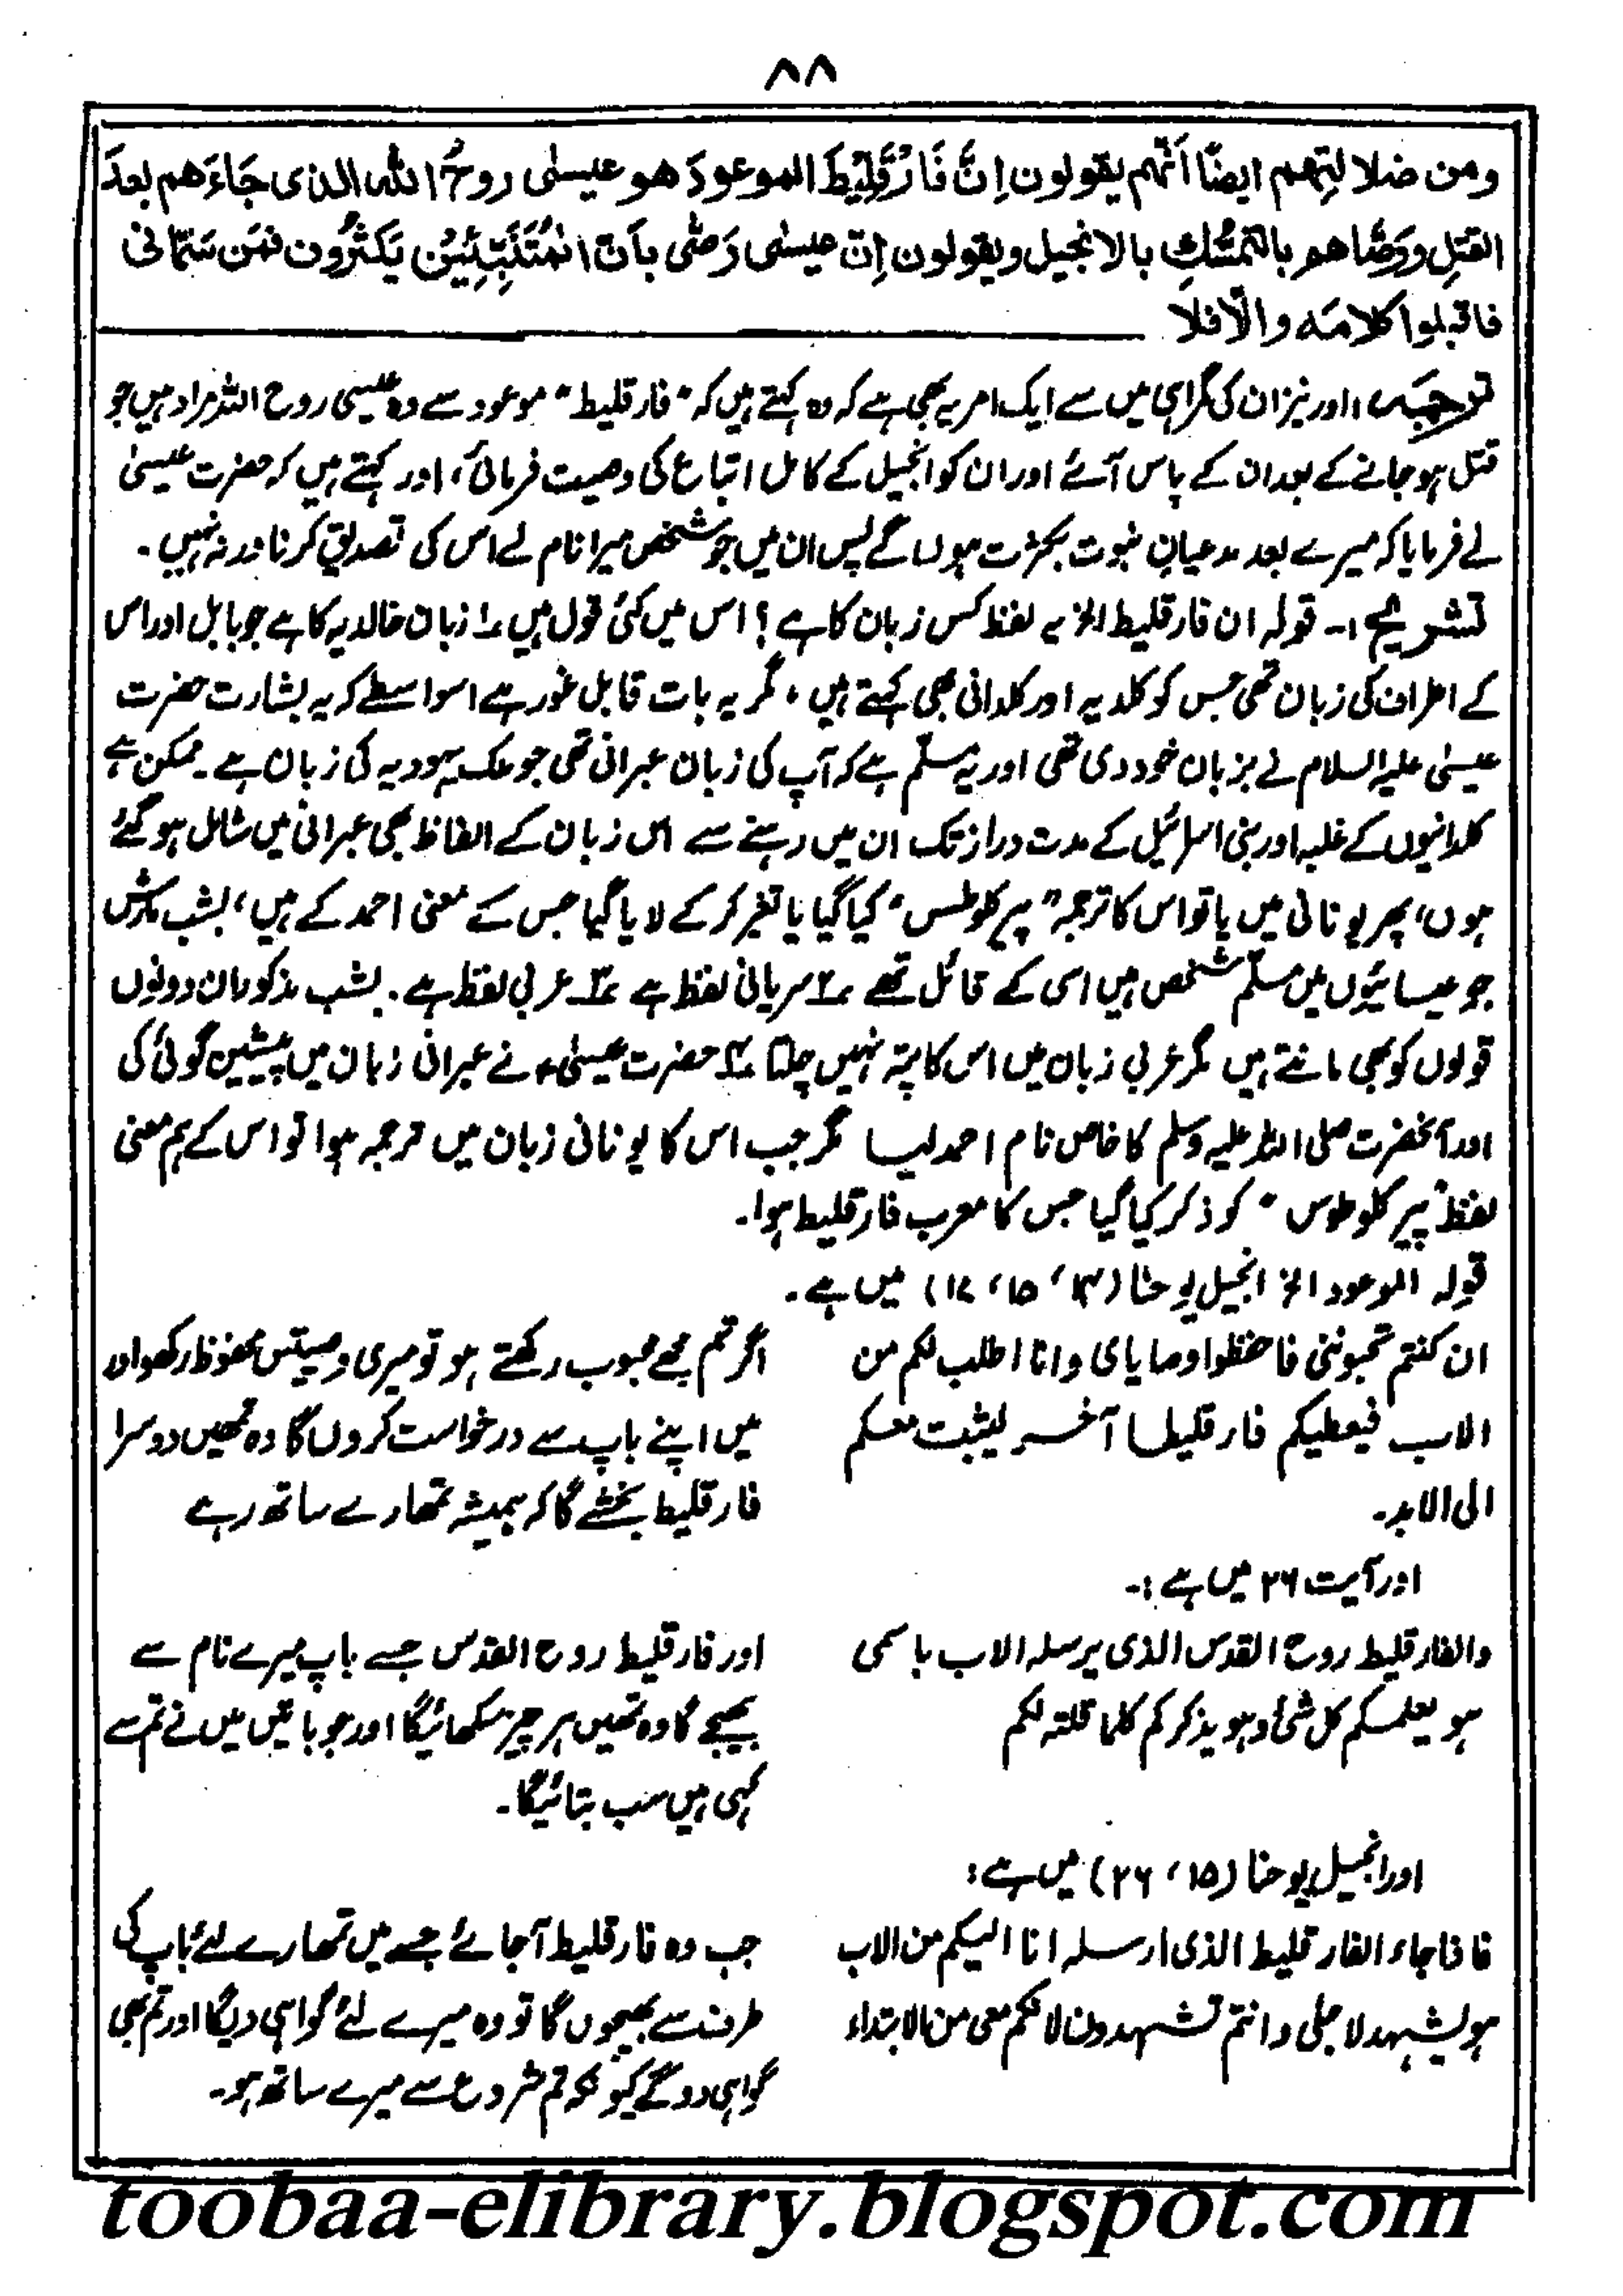 ۸۸
ومن ضلالتِهم ایضًا اَنّهم یقولون اِنَّ فَارْقَلِیْطَ الموعودَ هو عیسٰی روحُ اللّٰه الذی جَاءَهم بعدَ
القتلِ ووَصَّاهم بالتمسُّكِ بالانجیل ویقولون اِنّ عیسٰی وَصّٰی بِاَنّ المُتَنَبِّئِیْن یَكْثُرُون فمَن سَمّانی
فاقبلوا كلامَه والّا فلا
ترجمہ:، اور نیز ان کی گمراہی میں سے ایک امر یہ بھی ہے کہ وہ کہتے ہیں کہ "فارقلیط" موعود سے وہ عیسیٰ روح اللہ مراد ہیں جو
قتل ہو جانے کے بعد ان کے پاس آئے اور ان کو انجیل کے کامل اتباع کی وصیت فرمائی، اور کہتے ہیں کہ حضرت عیسیٰ
نے فرمایا کہ میرے بعد مدعیانِ نبوت بکثرت ہوں گے پس ان میں جو شخص میرا نام لے اس کی تصدیق کرنا ورنہ نہیں۔
تشریح :۔ قولہ ان فارقلیط الخ یہ لفظ کس زبان کا ہے؟ اس میں کئی قول ہیں ۱؎ زبان خالدیہ کا ہے جو بابل اور اس
کے اطراف کی زبان تھی جس کو کلدیہ اور کلدانی بھی کہتے ہیں، مگر یہ بات قابل غور ہے اسواسطے کہ یہ بشارت حضرت
عیسیٰ علیہ السلام نے بزبان خود دی تھی اور یہ مسلّم ہے کہ آپ کی زبان عبرانی تھی جو ملک یہودیہ کی زبان ہے۔ ممکن ہے
کلدانیوں کے غلبہ اور بنی اسرائیل کے مدت دراز تک ان میں رہنے سے اس زبان کے الفاظ بھی عبرانی میں شامل ہو گئے
ہوں، پھر یونانی میں یا تو اس کا ترجمہ "پیرکلوطس" کیا گیا یا تغیر کر کے لایا گیا جس کے معنی احمد کے ہیں، بشپ مارش
جو عیسائیوں میں مسلّم شخص ہیں اسی کے قائل تھے ۲؎ سریانی لفظ ہے ۳؎ عربی لفظ ہے۔ بشپ مذکور ان دونوں
قولوں کو بھی مانتے ہیں مگر عربی زبان میں اس کا پتہ نہیں چلتا ۴؎ حضرت عیسیٰؑ نے عبرانی زبان میں پیشین گوئی کی
اور آنحضرت صلی اللہ علیہ وسلم کا خاص نام احمد لیا مگر جب اس کا یونانی زبان میں ترجمہ ہوا تو اس کے ہم معنی
لفظ "پیر کلوطوس" کو ذکر کیا گیا جس کا معرب فارقلیط ہوا۔
قولہ الموعود الخ انجیل یوحنا (۱۴، ۱۵، ۱۷) میں ہے۔
ان کنتم تحبوننی فاحفظوا وصایای وانا اطلب لکم من
الاب فیعطیکم فارقلیطا آخر لیثبت معکم
الی الابد۔
اگر تم مجھے محبوب رکھتے ہو تو میری وصیتیں محفوظ رکھو اور
میں اپنے باپ سے درخواست کروں گا وہ تمھیں دوسرا
فارقلیط بخشے گا کہ ہمیشہ تمھارے ساتھ رہے
اور آیت ۲۶ میں ہے :۔
والفارقلیط روح القدس الذی یرسلہ الاب باسمی
ہو یعلمکم کل شیٔ وہو یذکرکم کلما قلتہ لکم
اور فارقلیط روح القدس جسے باپ میرے نام سے
بھیجے گا وہ تمھیں ہر چیز سکھائیگا اور جو باتیں میں نے تم سے
کہی ہیں سب بتائیگا۔
اور انجیل یوحنا (۱۵، ۲۶) میں ہے:
فاذا جاء الفارقلیط الذی ارسلہ انا الیکم من الاب
ہو یشہد لاجلی وانتم تشہدون لانکم معی من الابتداء
جب وہ فارقلیط آجائے جسے میں تمھارے لئے باپ کی
طرف سے بھیجوں گا تو وہ میرے لئے گواہی دیگا اور تم بھی
گواہی دو گے کیونکہ تم شروع سے میرے ساتھ ہو۔
toobaa-elibrary.blogspot.com